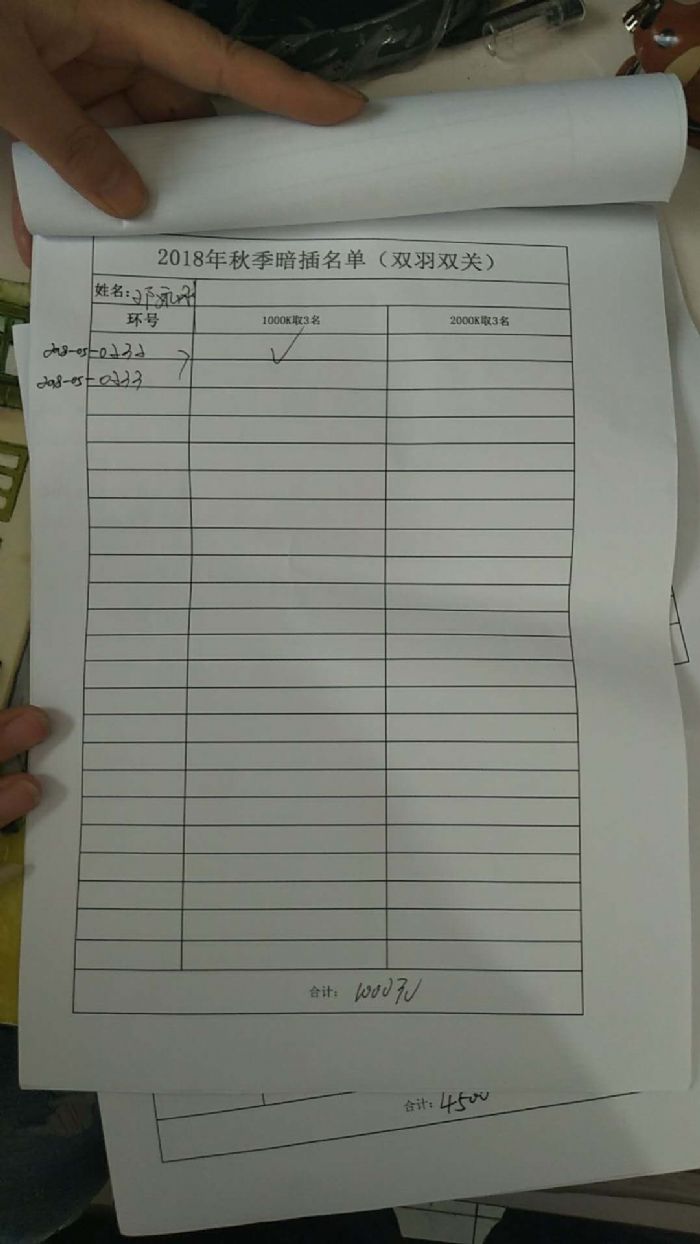 2018年秋季暗插名单（双羽双关）
姓名:
环号 1000K取3名 2000K取3名
2018-05-0232 ✓
2018-05-0233
合计: 1000元
合计: 4500